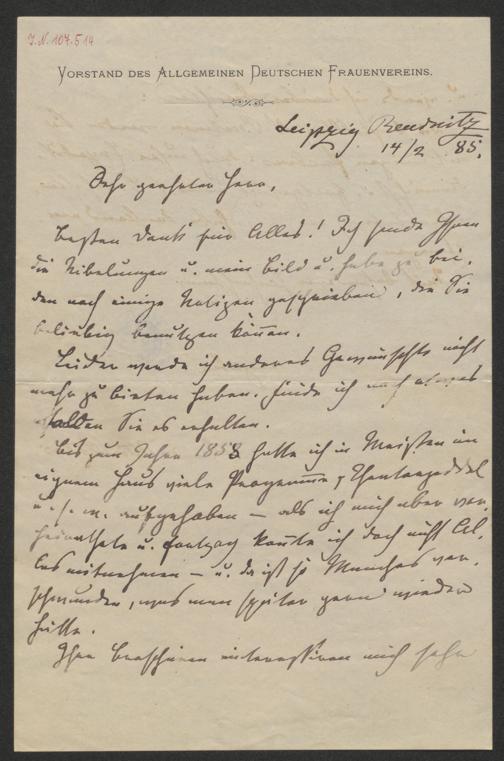 J.N. 107.514
Vorstand des Allgemeinen Deutschen Frauenvereins.
Leipzig Reudnitz
14/2 85.
Sehr geehrter Herr,
besten Dank für Alles! Ich sende Ihnen
die Nibelungen u. mein Bild u. habe zu bei-
den noch einige Notizen geschrieben, die Sie
beliebig benutzen können.
Leider werde ich anderes Gewünschte nicht
mehr zu bieten haben. Finde ich noch etwas
sollen Sie es erhalten.
Bis zum Jahre 1858 hatte ich in Meißen im
eignen Haus viele Programme, Theaterzettel
u. s. w. aufgehoben – als ich mich aber ver-
heirathete u. fortzog konnte ich doch nicht Al-
les mitnehmen – u. da ist so Manches ver-
schwunden, was man später gern wieder
hätte.
Ihre Broschüren interessiren mich sehr